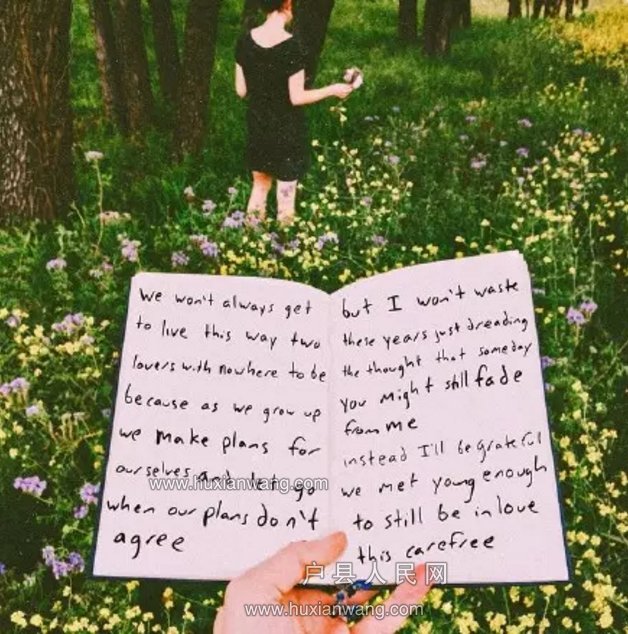 we won't always get
to live this way two
lovers with nowhere to be
because as we grow up
we make plans for
ourselves and let go
when our plans don't
agree
but I won't waste
these years just dreading
the thought that someday
you might still fade
from me
instead I'll be grateful
we met young enough
to still be in love
this carefree
www.huxianwang.com
户县人民网
www.huxianwang.com